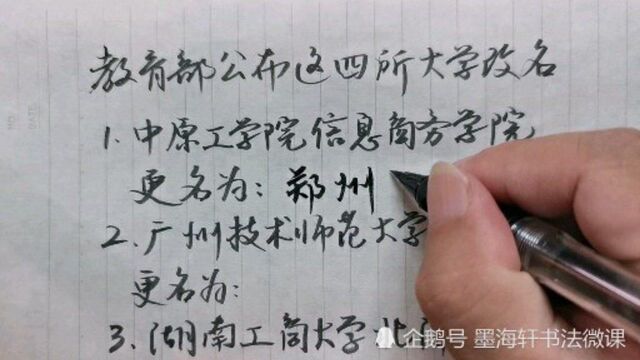 教育部公布这四所大学改名
1.中原工学院信息商务学院
更名为:郑州
2.广州技术师范大学
更名为:
3.湖南工商大学北
企鹅号 墨海轩书法微课